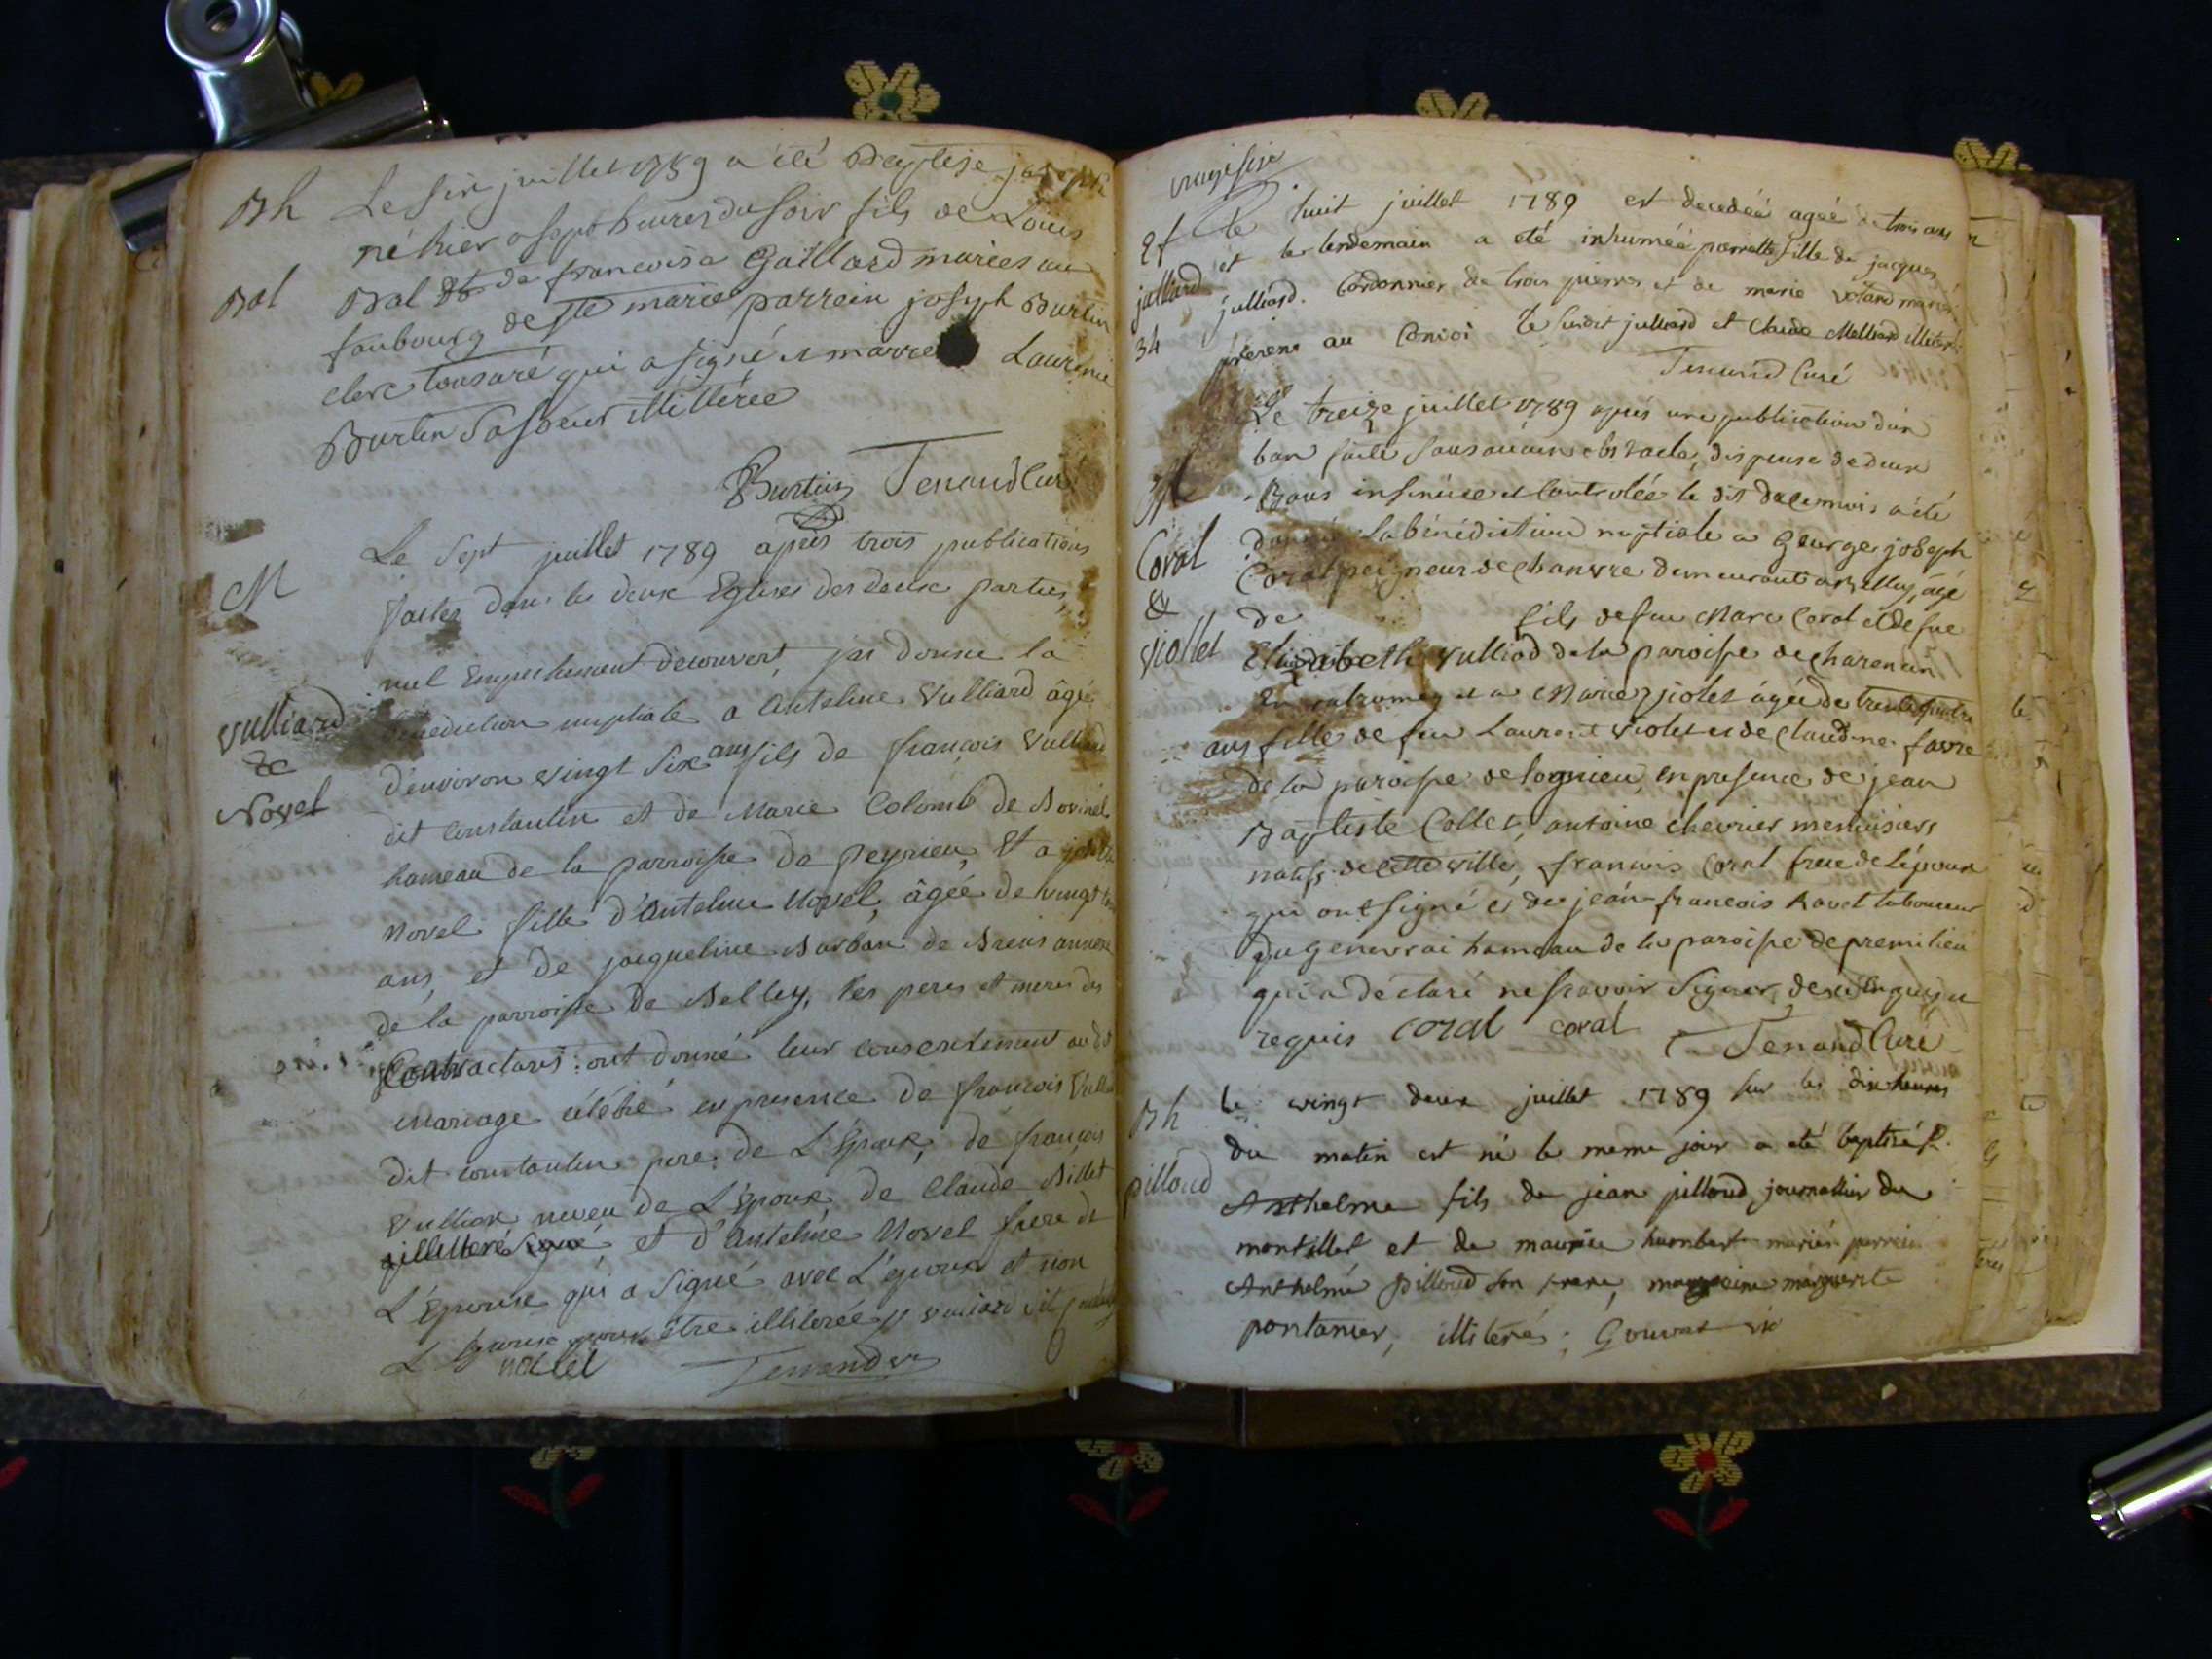 Bh Le six juillet 1789 a été Baptisé joseph
né hier a sept heures du soir fils de Louis
Bal Bal et de francoise Gaillard mariés au
faubourg de ste marie parrein joseph Burtin
clerc tonsuré qui a signé et marre Laurence
Burtin sa soeur illitérée
Burtin Tenand Curé
Le sept juillet 1789 après trois publications
M
faites dans les deux Eglises des deux parties,
nul Empechement decouvert j'ai donné la
Vulliard benediction nuptiale a Antelme Vulliard âgé
&
d'environ vingt six ans fils de françois Vulliard
Novel
dit constantin et de Marie Colomb de
hameau de la parroisse de peyrieu, et a
Novel fille d'Antelme Novel, âgée de vingt
ans, et de jacqueline Barban de Brens annexe
de la parroisse de Belley, les peres et meres des
Contractans ont donné leur consentement audit
mariage célébré en presence de francois
dit constantin pere de L'Epoux, de françois
neveu de L'Epoux, de Claude Billet
et d'Antelme Novel frere de
L'Epouse qui a signé avec L'epoux et non
L'Epouse pour être illiterée
novel Tenand
vingt six
Ef le huit juillet 1789 est decedéé agéé de trois ans
julliard et le lendemain a été inhuméé perrette fille de jacques
julliard Cordonnier de trois pierres et de marie
34 presens au Convoi le susdit julliard et Claude
Tenand Curé
Le treize juillet 1789 après une publication d'un
ban faite sans aucun obstacle, dispense de deux
M Bans insinuée et Controlée le dit de ce mois a été
donné la bénédiction nuptiale a George joseph
Coral Coral peigneur de chanvre demeurant a Belley, âgé
& de fils de feu Marc Coral et de feue
Viollet Elizabeth Vulliod de la paroisse de
en valromey et a Marie Violet âgée de trente quatre
ans fille de feu Laurent Violet et de claudine favre
de la paroisse de lagnieu, en presence de jean
Baptiste Collet, antoine chevrier menuisiers
natifs de cette ville, francois Coral frere de l'époux
qui ont signé et de jean francois Ravet laboureur
du genevrai hameau de la paroisse de premilieu
qui a déclaré ne scavoir signer, de ce enquis
requis coral coral Tenand Curé
Bh le vingt deux juillet 1789 sur les dix heures
du matin est né le meme jour a été baptisé
pilloud Anthelme fils de jean pilloud journallier de
montillet et de humbert mariés parrein
Anthelme pilloud son frere, marguerite
pontanier, illiterés; Gouvat